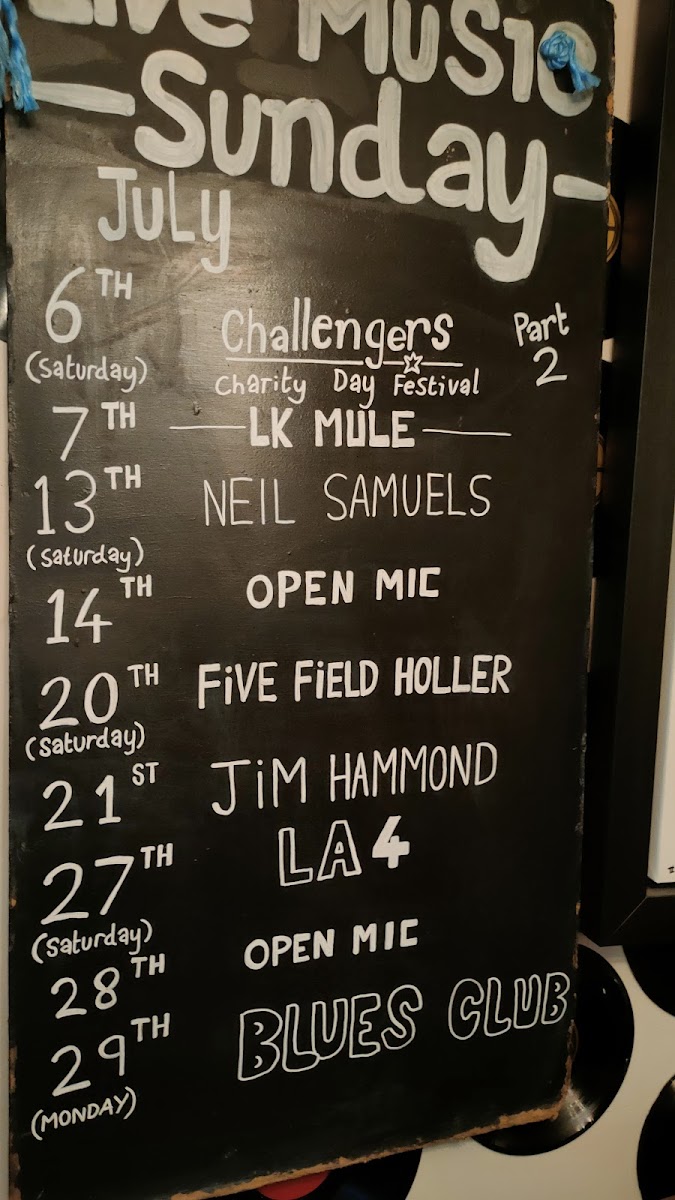 Live Music
-Sunday-
July
6TH Challengers Part 2
(Saturday) Charity Day Festival
7TH LK MULE
13TH NEIL SAMUELS
(Saturday)
14TH OPEN MIC
20TH FiVE FiELD HOLLER
(Saturday)
21ST JiM HAMMOND
27TH LA4
(Saturday)
28TH OPEN MIC
29TH BLUES CLUB
(MONDAY)